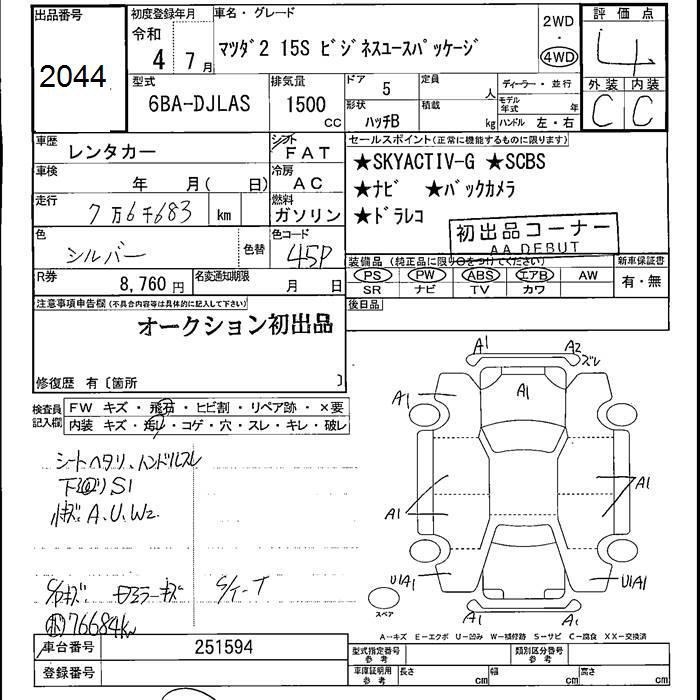 出品番号
2044
初度登録年月
令和
4年 7月
車名・グレード
マツダ2 15S ビジネスユースパッケージ
2WD
・
4WD
評価点
4
外装 内装
C C
型式
6BA-DJLAS
排気量
1500
CC
ドア 5
形状 ハッチB
定員 人
積載 kg
ディーラー・並行
モデル年式 年
ハンドル 左・右
車歴 レンタカー
シフト FAT
車検 年 月( 日)
冷房 AC
走行 7万6千683 km
燃料 ガソリン
色 シルバー 色替
色コード 45P
R券 8,760円
名変通知期限 月 日
セールスポイント(正常に機能するものに限ります)
★SKYACTIV-G ★SCBS
★ナビ ★バックカメラ
★ドラレコ
初出品コーナー
AA DEBUT
装備品(純正品に限り○をつけてください)
PS PW ABS エアB AW
SR ナビ TV カワ
新車保証書
有・無
後日品
注意事項申告欄(不具合内容等は具体的に記入して下さい)
オークション初出品
修復歴 有〔箇所 〕
検査員記入欄
FW キズ・飛石・ヒビ割・リペア跡・×要
内装 キズ・汚レ・コゲ・穴・スレ・キレ・破レ
シートヘタリ、ハンドルスレ
下回りS1
小キズ、A、U、W2
76684km
A1 A2
ズレ
A1 A1
A1 A1
U1A1 U1A1
A1 A1
スペア
A-キズ E-エクボ U-凹み W-補修跡 S-サビ C-腐食 XX-交換済
車台番号 251594
登録番号
型式指定番号 参考
類別区分番号 参考
車庫証明用 参考
長さ cm 幅 cm 高さ cm